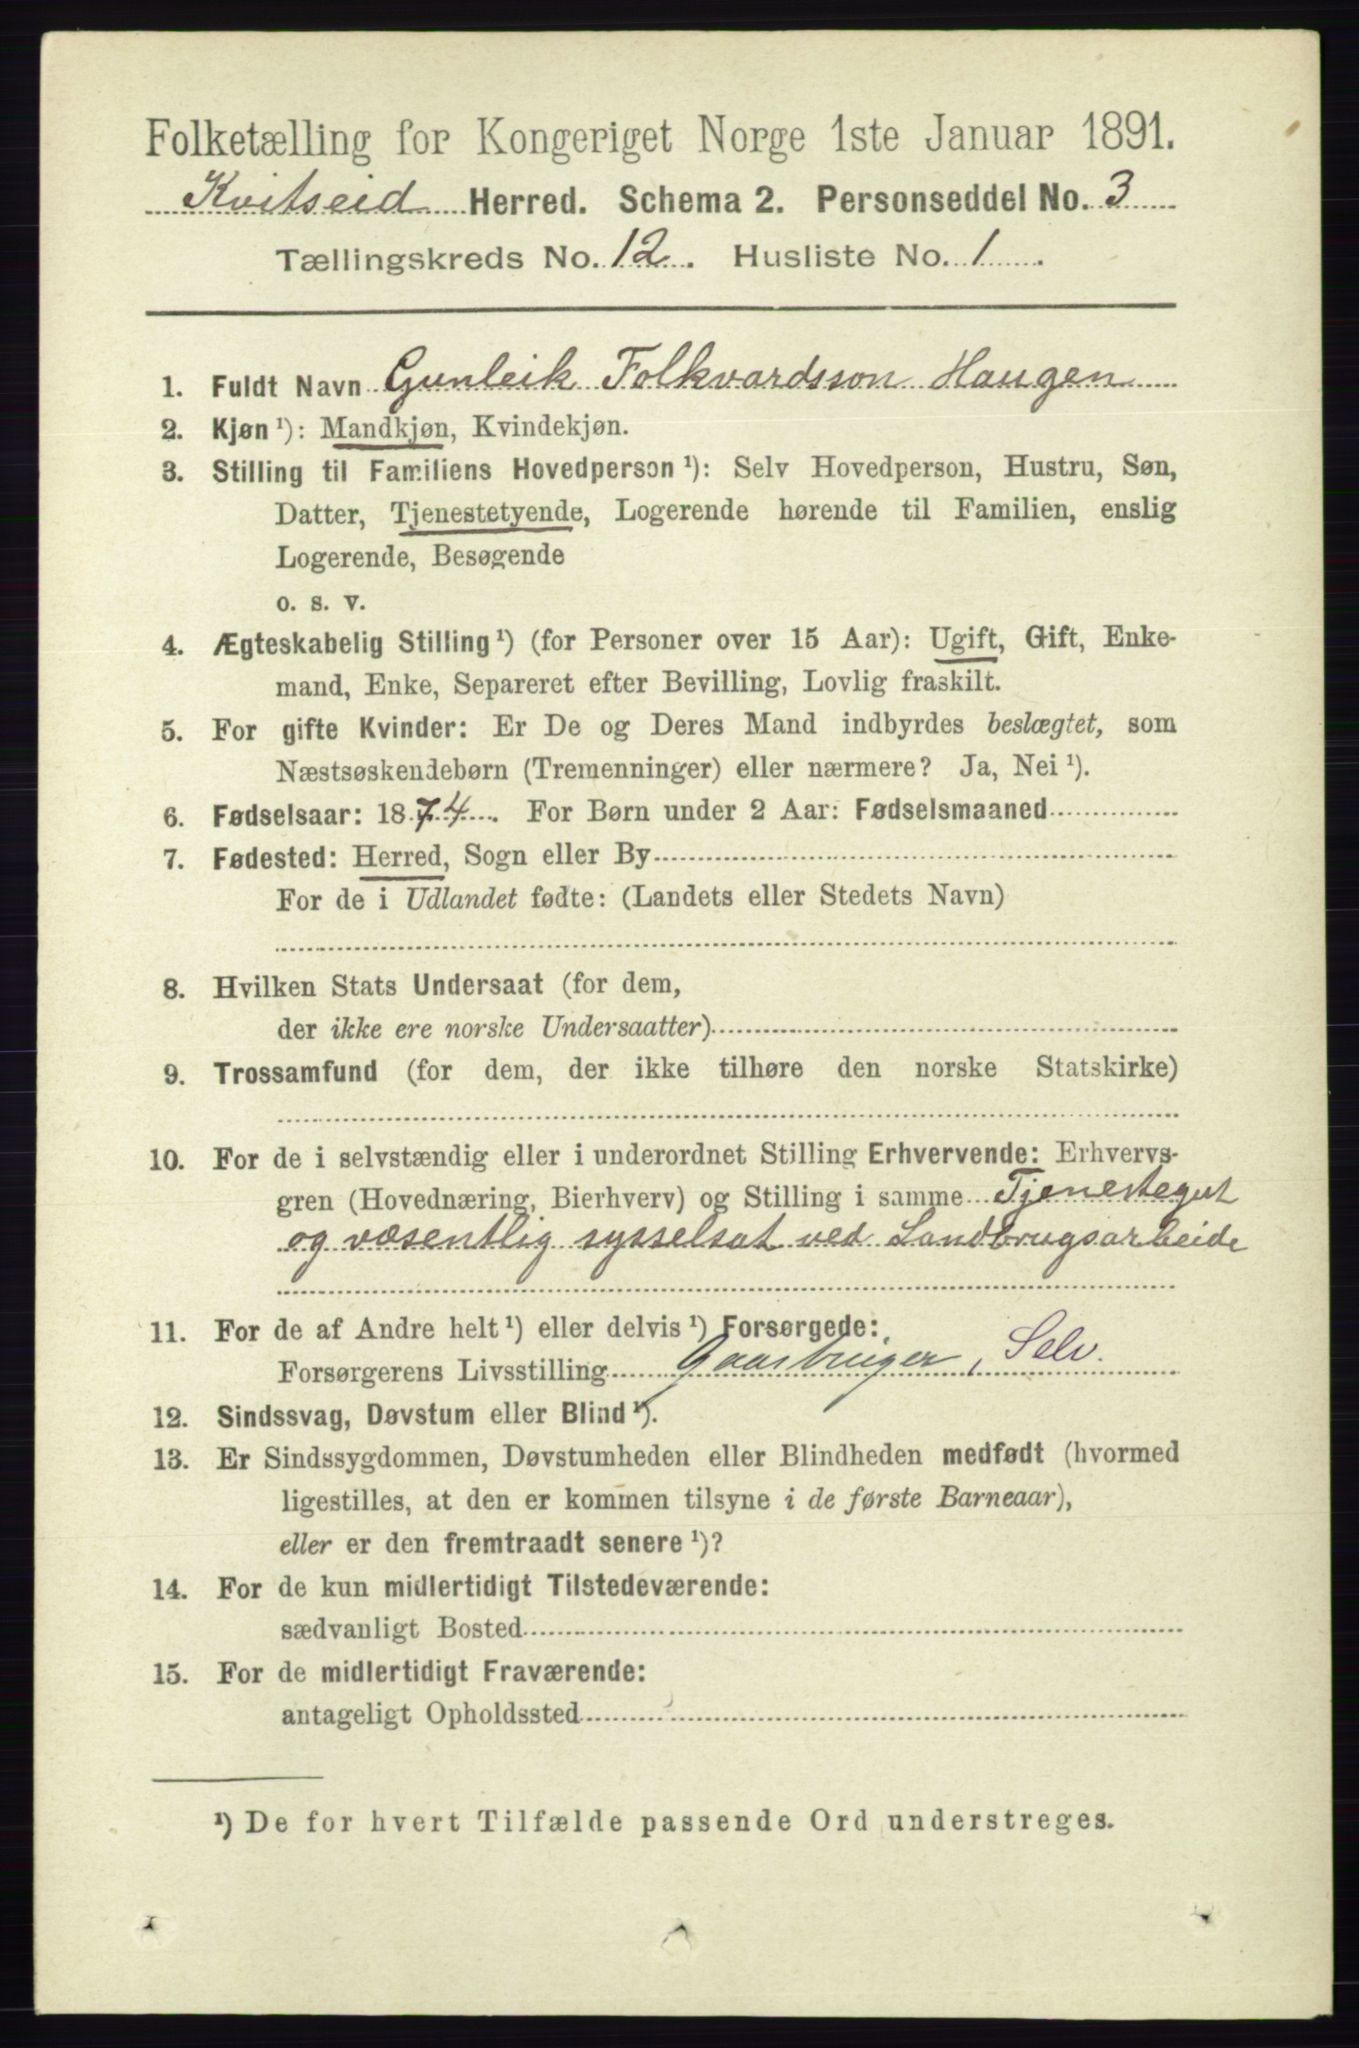 Folketælling for Kongeriget Norge 1ste Januar 1891.
Kvitseid Herred. Schema 2. Personseddel No. 3
Tællingskreds No. 12. Husliste No. 1.
1. Fuldt Navn Gunleik Folkvardsson Haugen
2. Kjøn ¹): Mandkjøn, Kvindekjøn.
3. Stilling til Familiens Hovedperson ¹): Selv Hovedperson, Hustru, Søn,
Datter, Tjenestetyende, Logerende hørende til Familien, enslig
Logerende, Besøgende
o. s. v.
4. Ægteskabelig Stilling ¹) (for Personer over 15 Aar): Ugift, Gift, Enke-
mand, Enke, Separeret efter Bevilling, Lovlig fraskilt.
5. For gifte Kvinder: Er De og Deres Mand indbyrdes beslægtet, som
Næstsøskendebørn (Tremenninger) eller nærmere? Ja, Nei ¹).
6. Fødselsaar: 1874. For Børn under 2 Aar: Fødselsmaaned
7. Fødested: Herred, Sogn eller By
For de i Udlandet fødte: (Landets eller Stedets Navn)
8. Hvilken Stats Undersaat (for dem,
der ikke ere norske Undersaatter)
9. Trossamfund (for dem, der ikke tilhøre den norske Statskirke)
10. For de i selvstændig eller i underordnet Stilling Erhvervende: Erhvervs-
gren (Hovednæring, Bierhverv) og Stilling i samme Tjenestegut
og væsentlig sysselsat ved Landbrugsarbeide
11. For de af Andre helt ¹) eller delvis ¹) Forsørgede:
Forsørgerens Livsstilling Gaarbruger, Selv.
12. Sindssvag, Døvstum eller Blind ¹).
13. Er Sindssygdommen, Døvstumheden eller Blindheden medfødt (hvormed
ligestilles, at den er kommen tilsyne i de første Barneaar),
eller er den fremtraadt senere ¹)?
14. For de kun midlertidigt Tilstedeværende:
sædvanligt Bosted
15. For de midlertidigt Fraværende:
antageligt Opholdssted
¹) De for hvert Tilfælde passende Ord understreges.